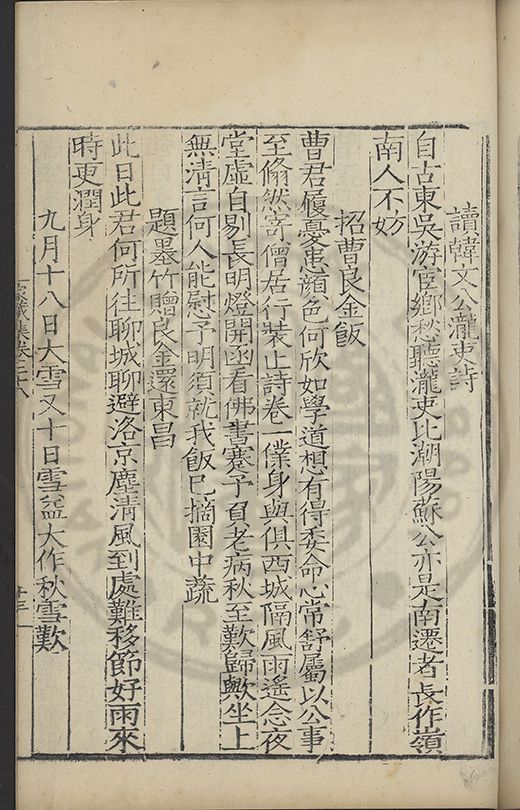 讀韓文公瀧吏詩
自古東吳游宦鄉愁聽瀧吏比潮陽蘇公亦是南遷者長作嶺
南人不妨
招曹良金飯
曹君履憂患顏色何欣如學道想有得委命心常舒屬以公事
至翛然寄僧居行裝止詩卷一僕身與俱西城隔風雨遙念夜
堂虛自剔長明燈開函看佛書蹇予負老病秋至歎歸歟坐上
無清言何人能慰予明須就我飯已摘園中蔬
題墨竹贈良金還東昌
此日此君何所往聊城聊避洛京塵清風到處難移節好雨來
時更潤身
九月十八日大雪又十日雪益大作秋雪歎
集卷二十八
廿三